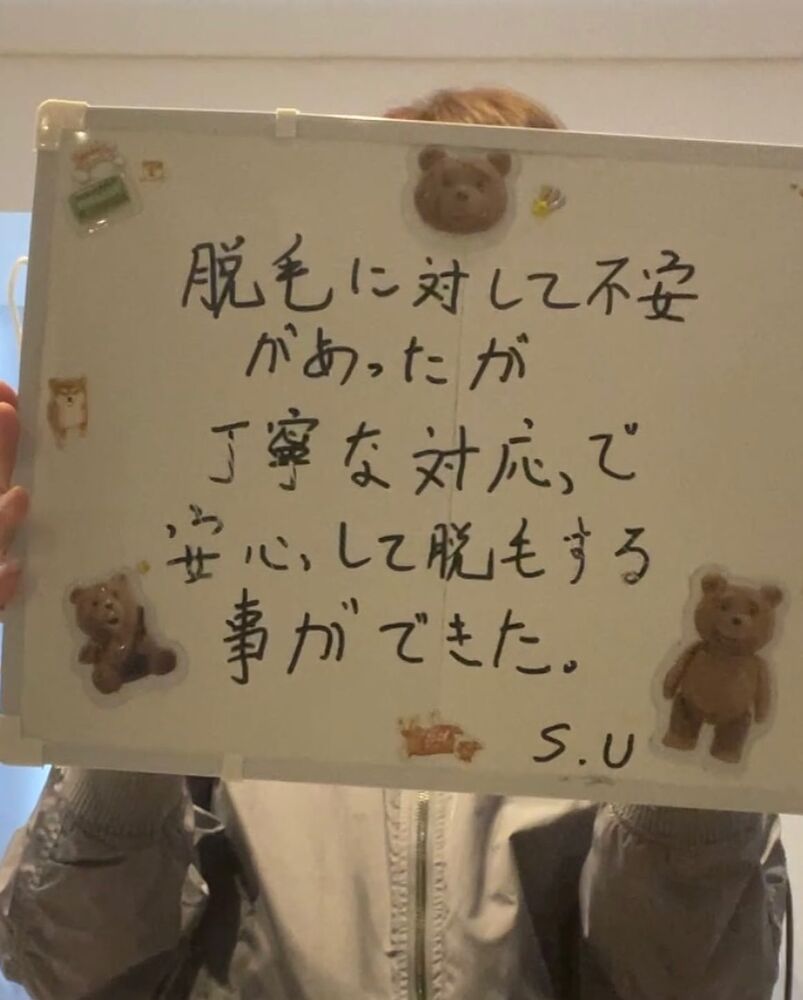 脱毛に対して不安
があったが
丁寧な対応で
安心して脱毛する
事ができた。
S.U